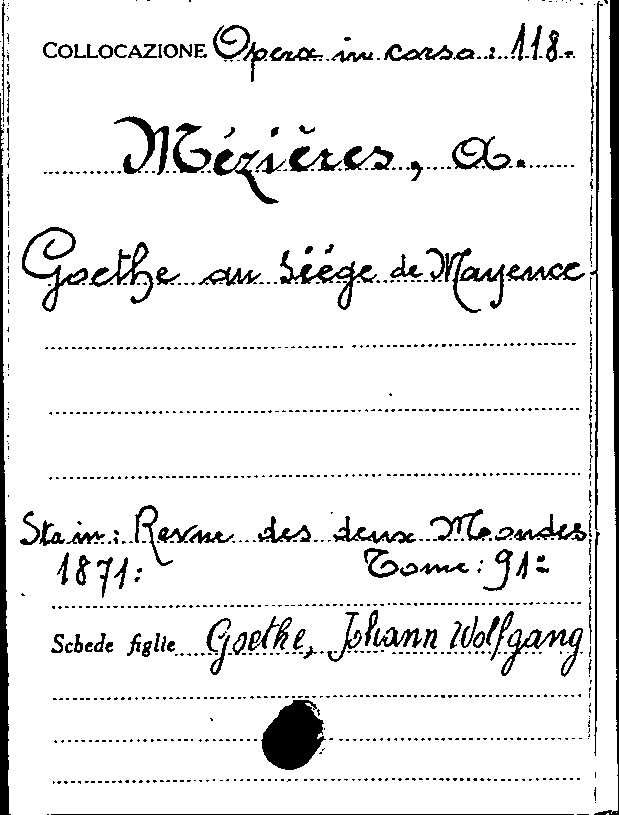 COLLOCAZIONE Opera in corso: 118-
Mézières, A.
Goethe au siége de Mayence
Sta in: Revue des deux Mondes
1871: Tome: 91=
Schede figlie Goethe, Johann Wolfgang